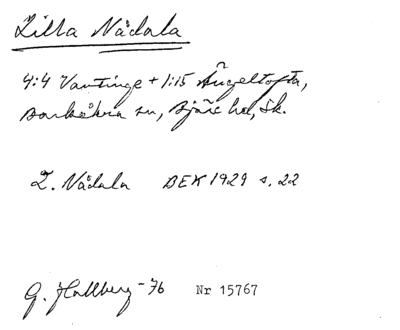 Lilla Nådala
4:4 Vantinge + 1:15 Ängeltofta,
Barkåkra sn, Bjäre hd, Sk.
L. Nådala BEK 1929 s. 22
G. Hallberg -76 Nr 15767